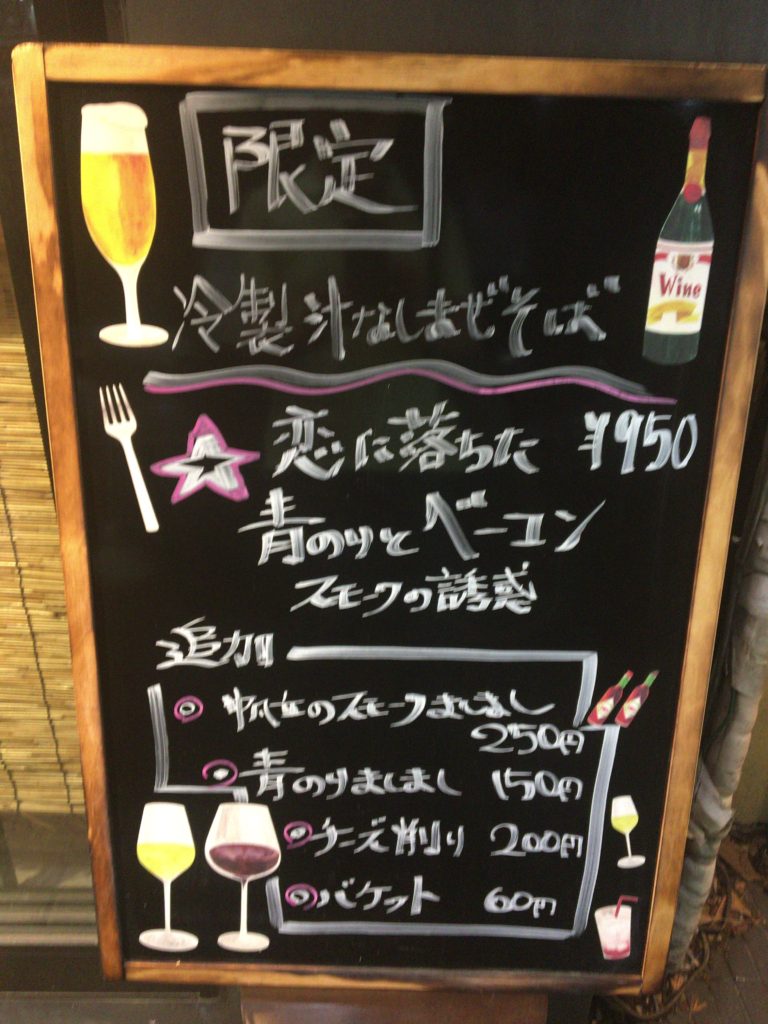 限定
冷製汁なしまぜそば
Wine
恋に落ちた ¥950
青のりとベーコン
スモークの誘惑
追加
のスモークましまし
250円
青のりましまし 150円
チーズ削り 200円
バケット 60円